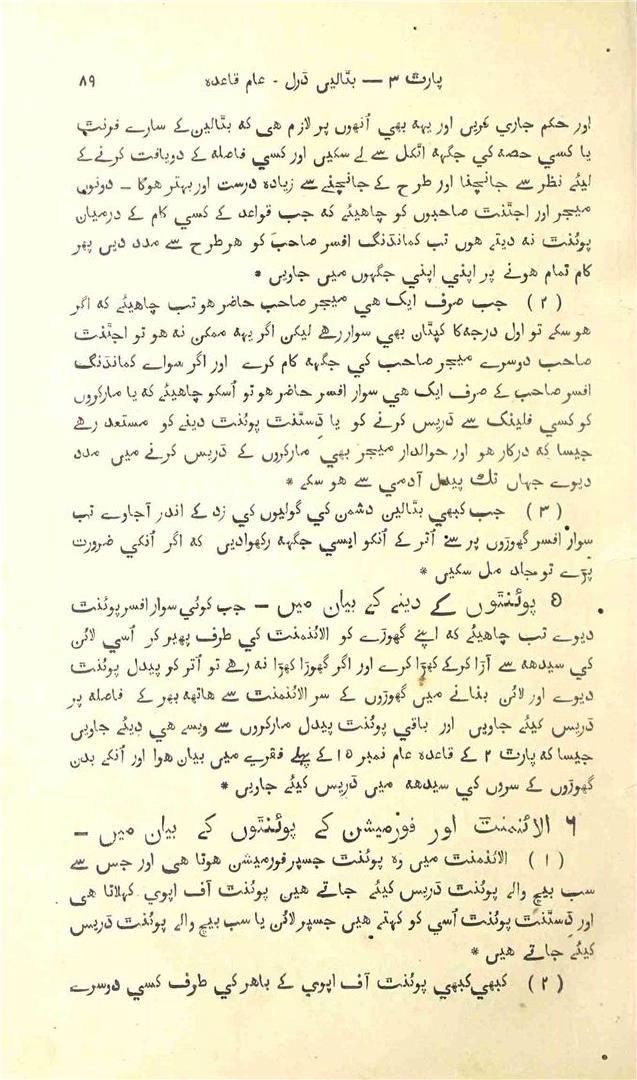 پارٹ ۳ — بٹالیں ڈرل - عام قاعدہ ۸۹
اور حکم جاري کریں اور یہہ بھي اُنھوں پر لازم هی که بٹالین کے سارے فرنٹ
یا کسي حصه کي جگہه اٹکل سے لے سکیں اور کسي فاصله کے دریافت کرنے کے
لیئے نظر سے جانچنا اور طرح کے جانچنے سے زیادہ درست اور بہتر هوگا - دونوں
میجر اور اجٹنٹ صاحبوں کو چاهیئے که جب قواعد کے کسي کام کے درمیان
پوئنٹ نه دیتے هوں تب کمانڈنگ افسر صاحب کو هر طرح سے مدد دیں پھر
کام تمام هونے پر اپني اپني جگہوں میں جاویں *
( ۲ ) جب صرف ایک هي میجر صاحب حاضر هو تب چاهیئے که اگر
هو سکے تو اول درجه کا کپتان بھي سوار رهے لیکن اگر یہه ممکن نه هو تو اجٹنٹ
صاحب دوسرے میجر صاحب کي جگہه کام کرے اور اگر سواے کمانڈنگ
افسر صاحب کے صرف ایک هي سوار افسر حاضر هو تو اُسکو چاهیئے که یا مارکروں
کو کسي فلینک سے ڈریس کرنے کو یا ڈِسٹنٹ پوئنٹ دینے کو مستعد رهے
جیسا که درکار هو اور حوالدار میجر بھي مارکروں کے ڈریس کرنے میں مدد
دیوے جہاں تک پیدل آدمي سے هو سکے *
( ۳ ) جب کبھي بٹالین دشمن کي گولیوں کي زد کے اندر آجاوے تب
سوار افسر گھوڑوں پر سے اُتر کے اُنکو ایسي جگہه رکھوادیں که اگر اُنکي ضرورت
پڑے تو جلد مل سکیں *
۵ پوئنٹوں کے دینے کے بیان میں — جب کوئي سوار افسر پوئنٹ
دیوے تب چاهیئے که اپنے گھوڑے کو الائنمنٹ کي طرف پھیر کر اُسي لائن
کي سیدھه سے آڑا کرکے کھڑا کرے اور اگر گھوڑا کھڑا نه رهے تو اُتر کو پیدل پوئنٹ
دیوے اور لائن بنانے میں گھوڑوں کے سر الائنمنٹ سے هاتھه بھر کے فاصله پر
ڈریس کیئے جاویں اور باقي پوئنٹ پیدل مارکروں سے ویسے هي دیئے جاویں
جیسا که پارٹ ۲ کے قاعدہ عام نمبر ۱۵ کے پہلے فقرے میں بیان هوا اور اُنکے بدن
گھوڑوں کے سروں کي سیدھه میں ڈریس کیئے جاویں *
۶ الائنمنٹ اور فورمیشن کے پوئنٹوں کے بیان میں —
( ۱ ) الائنمنٹ میں وہ پوئنٹ جسپر فورمیشن هوتا هی اور جس سے
سب بیچ والے پوئنٹ ڈریس کیئے جاتے هیں پوئنٹ آف اپوي کہلاتا هی
اور ڈِسٹنٹ پوئنٹ اُسي کو کہتے هیں جسپر لائن یا سب بیچ والے پوئنٹ ڈریس
کیئے جاتے هیں *
( ۲ ) کبھي کبھي پوئنٹ آف اپوي کے باهر کي طرف کسي دوسرے